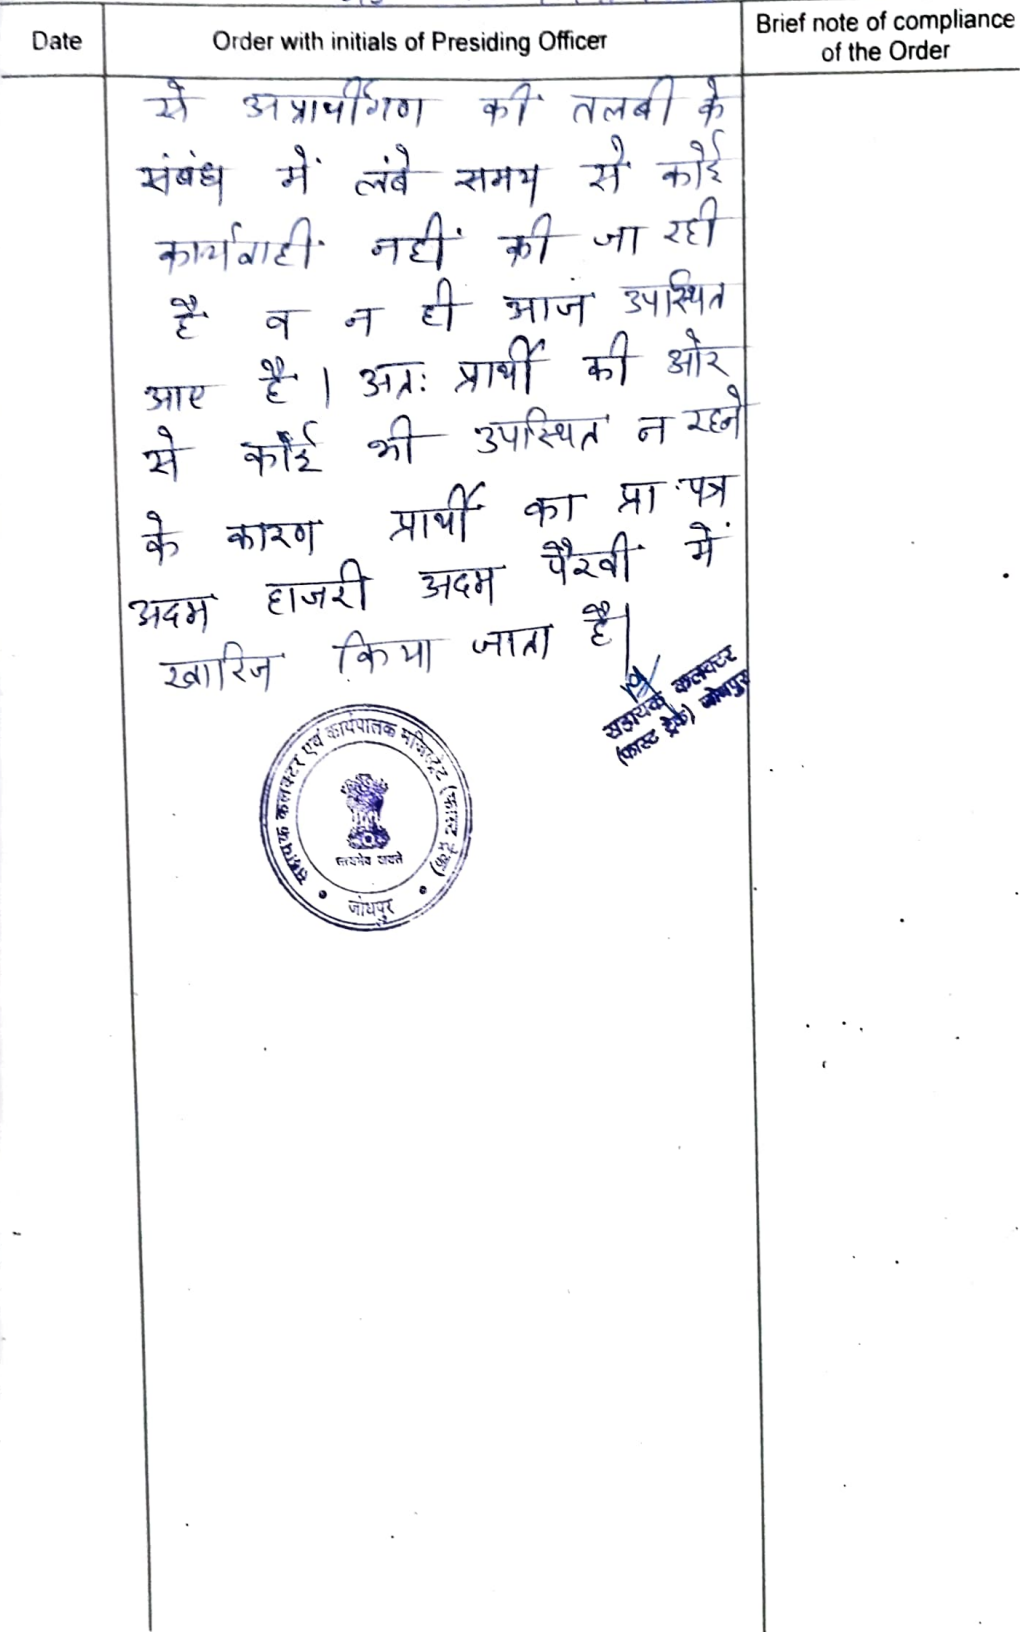 Date
Order with initials of Presiding Officer
Brief note of compliance
of the Order
से अप्रार्थीगण की तलबी के
संबंध में लंबे समय से कोई
कार्यवाही नहीं की जा रही
है व न ही आज उपस्थित
आए है। अतः प्रार्थी की ओर
से कोई भी उपस्थित न रहने
के कारण प्रार्थी का प्रा.पत्र
अदम हाजरी अदम पैरवी में
खारिज किया जाता है।
सहायक कलक्टर
(फास्ट ट्रेक) जोधपुर
सहायक कलक्टर एवं कार्यपालक मजिस्ट्रेट (फास्ट ट्रेक)
सत्यमेव जयते
जोधपुर